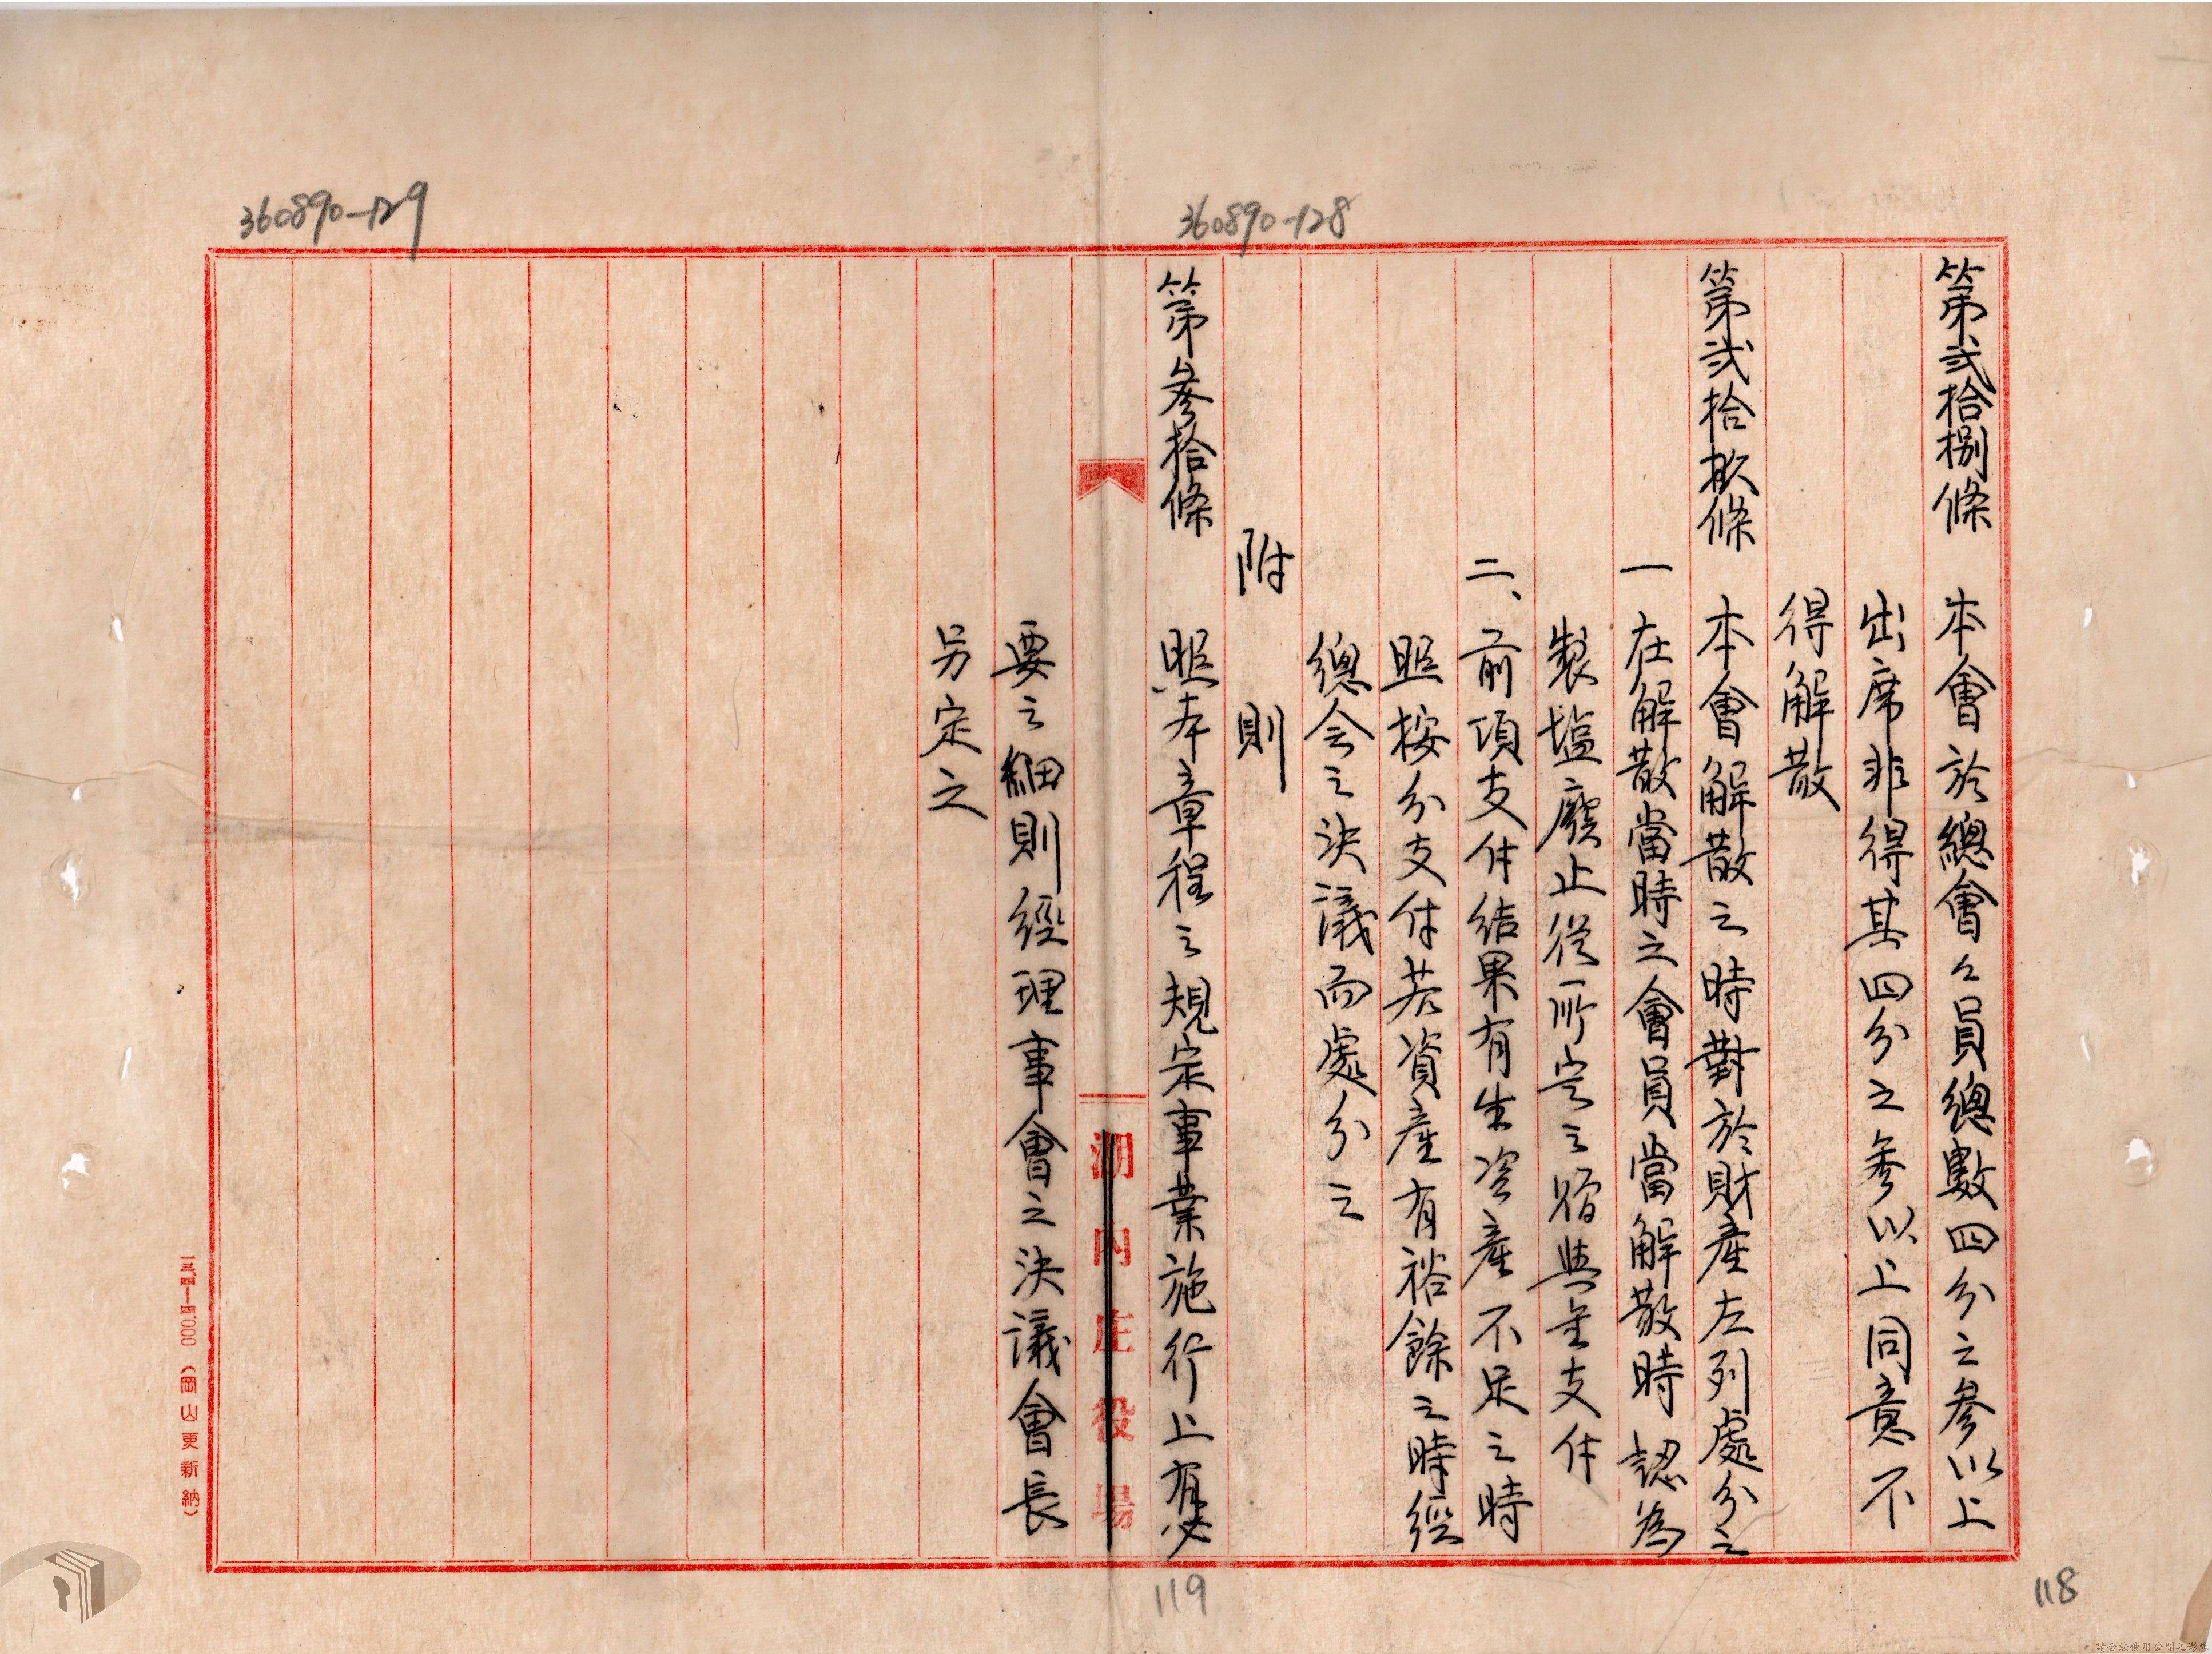 360890-128
第貳拾捌條　本會於總會々員總數四分之參以上
出席非得其四分之參以上同意不
得解散
第貳拾玖條　本會解散之時對於財產左列處分之
一　在解散當時之會員當解散時認為
製塩廢止從所定之贈與金支付
二、前項支付結果有生資產不足之時
照按分支付若資產有裕餘之時經
總会之決議而處分之
附則
第參拾條　照本章程之規定事業施行上有必
湖內庄役場
要之細則經理事會之決議會長
另定之
360890-129
一三、四—四、000（岡山更新納）
119
118
請合法使用公開之影像